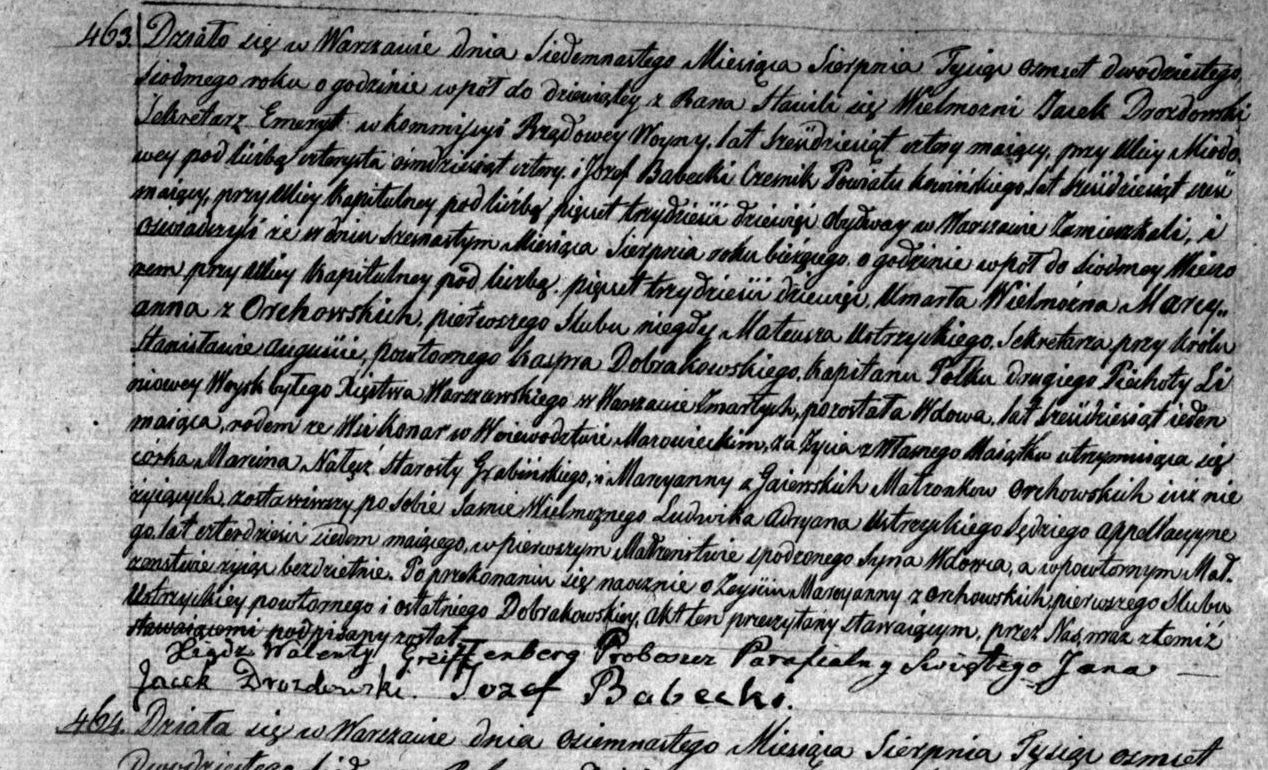 463. Działo się w Warszawie dnia Siedemnastego Miesiąca Sierpnia Tysiąc osmset dwudziestego
siodmego roku o godzinie wpół do dziewiątey z Rana Stawili się Wielmozni Jacek Drozdowski
Sekretarz Emeryt w kommissyi Rządowey Woyny, lat sześćdziesiąt cztery maiący, przy Ulicy Miodo„
wey pod liczbą czterysta ośmdziesiąt cztery. i Jozef Babecki Czesnik Powiatu lat sześćdziesiąt sześć
maiący, przy Ulicy Kapitulney pod liczbą pięćset trzydzieści dziewięć obydway w Warszawie Zamieszkali, i
oswiadczyli że w dniu Szesnastym Miesiąca Sierpnia roku bieżącego o godzinie wpół do siodmey Wieczo
rem przy Ulicy Kapitulney pod liczbą pięćset trzydzieści dziewięć, Umarła Wielmożna Marcy„
anna z Orchowskich, pierwszego Slubu niegdy Mateusza Ustrzyckiego, Sekretarza przy Królu
Stanisławie Auguście, powtornego Kaspra Dobrakowskiego, Kapitanu Pułku drugiego Piechoty Li
niowey Woysk byłego Xięstwa Warszawskiego w Warszawie Zmarłych, pozostała Wdowa, lat sześćdziesiąt ieden
maiąca, rodem ze Wsi Konar w Woiewodztwie Mazowieckim, za Życia z własnego Maiątku utrzymuiąca się
córka Marcina Nałęcz Starosty Grabińskiego, i Maryanny z Gaiewskich Małżonkow Orchowskich iuż nie
żyiących, zostawiwszy po Sobie Jasnie Wielmożnego Ludwika Adryana Ustrzyckiego Sędziego Appellacyyne
go, lat czterdzieści siedem maiącego, w pierwszym Małżeństwie spłodzonego Syna Wdowca, a w powtornym Mał„
żenstwie żyiąc bezdzietnie. Po przekonaniu się naocznie o Zeyściu Marcyanny z Orchowskich, pierwszego Slubu
Ustrzyckiey powtornego i ostatniego Dobrakowskiey, Akt ten przeczytany stawaiącym, przez Nas wraz z temiż
stawaiącemi podpisany został
Xiądz Walenty Greiffenberg Proboszcz Parafialny Swiętego Jana
Jacek Drozdowski. Jozef Babecki.
464. Działa się w Warszawie dnia Osiemnastego Miesiąca Sierpnia Tysiąc osmset
Dwudziestego